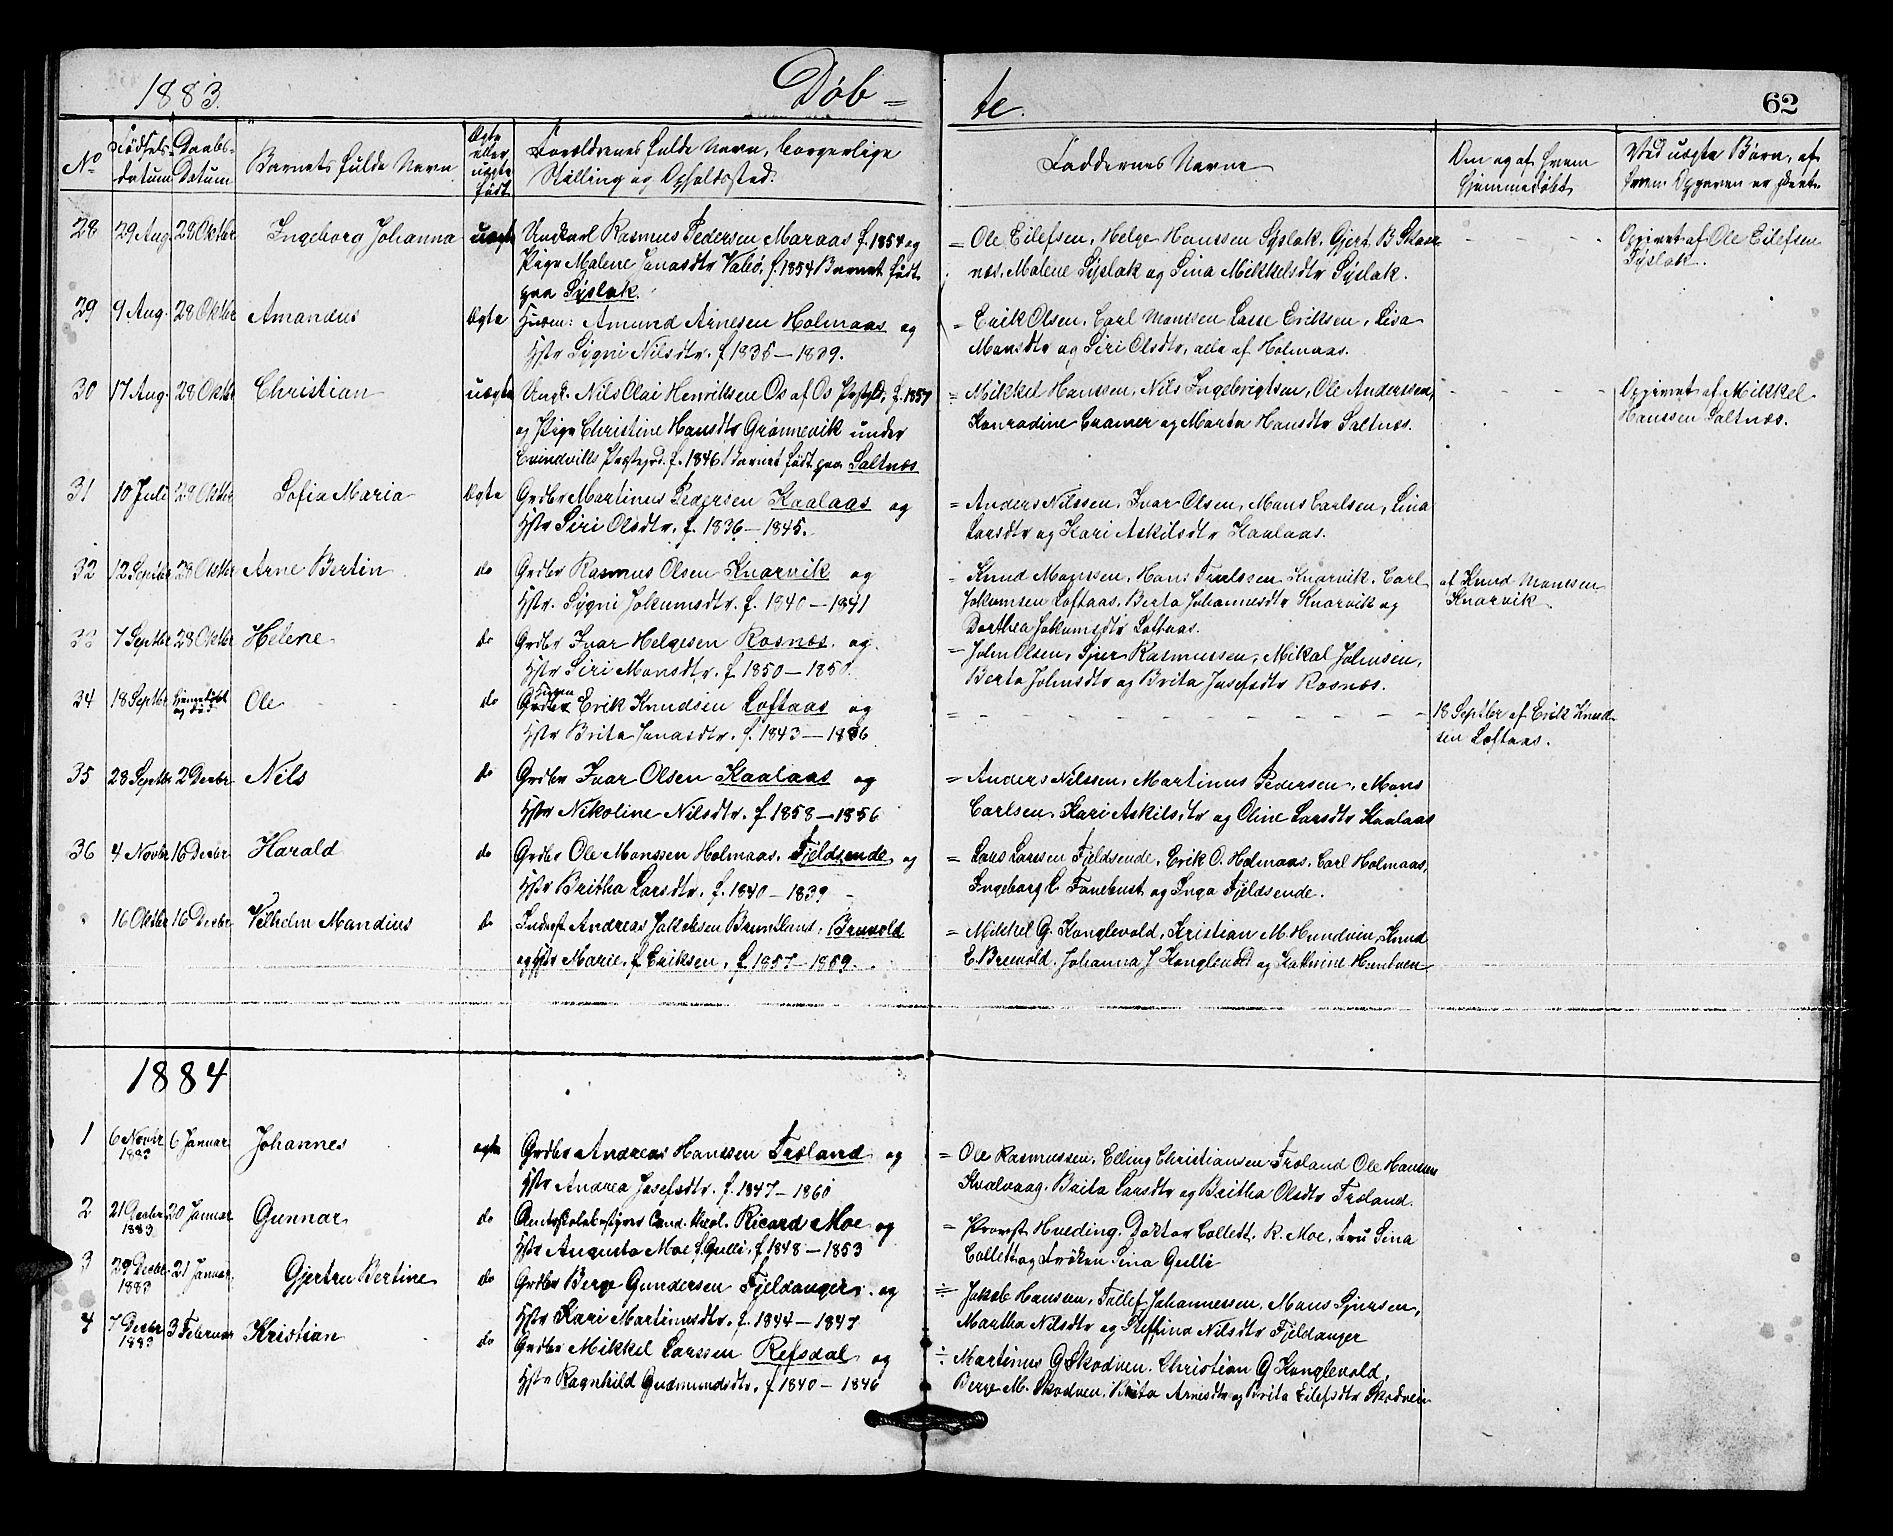 1883.
Døb =
te.
62
No
Fødsels- Datum
Daabs- Datum
Barnets fulde Navn
Ægte eller uægte født
Forældrenes fulde Navn, borgerlige Stilling og Opholdssted.
Faddernes Navne
Om og af hvem hjemmedøbt
Ved uægte Børn, af hvem Opgaven er skeet
28 29 Aug. 28 Oktbr Ingeborg Johanna uægte Ungkarl Rasmus Pedersen Maraas f. 1854 og
Pige Malene Jonasdtr Valeö, f. 1854 Barnet født
paa Syslak.
= Ole Eilefsen, Helge Hanssen Syslak, Gjert B
næs, Malene Syslak og Sina Mikkelsdtr Syslak.
Opgivet af Ole Eilefsen
Syslak.
29 9 Aug. 28 Oktbr Amandus Ægte Husm: Amund Arnesen Holmaas og
Hstr Sygni Nilsdtr. f. 1835 – 1839.
= Erik Olsen, Carl Monssen Lasse Eriksen, Lisa
Monsdtr og Siri Olsdtr, alle af Holmaas.
30 17 Aug. 28 Oktbr Christian uægte Ungk. Nils Olai Henriksen Os af Os Pgjld. f. 1857
og Pige Christine Hansdtr Grönnevik under
Evindviks Pgjld. f. 1846 Barnet født paa Saltnæs
= Mikkel Hanssen, Nils Ingebrigtsen, Ole Anderssen,
Konradine Cramer og Marta Hansdtr Saltnæs.
Opgivet af Mikkel
Hanssen Saltnæs.
31 10 Juli 28 Oktbr Sofia Maria Ægte Grdbr Martinus Pedersen Kaalaas og
Hstr Siri Olsdtr. f. 1836 – 1845.
= Anders Nilssen, Ivar Olsen, Mons Carlsen, Lina
Larsdtr og Kari Askilsdtr Kaalaas.
32 12 Septbr 28 Oktbr Arne Bertin do Grdbr Rasmus Olsen Knarvik og
Hstr. Sygni Jokumsdtr. f. 1840 – 1841
= Knud Monssen, Hans Truelssen Knarvik, Carl
Jokumsen Loftaas, Berta Johannesdtr Knarvik og
Dorthea Jokumsdtr Loftaas.
af Knud Monssen
Knarvik
33 7 Septbr 28 Oktbr Helene do Grdbr Ivar Helgesen Rosnæs. og
Hstr Siri Monsdtr. f. 1850 – 1850.
= John Olsen, Sjur Rasmussen, Mikal Johnsen,
Berta Johnsdtr og Brita Josefsdtr Rosnæs.
34 18 Septbr Hjemmedøbt og død Ole do Husm Grdbr Erik Knudsen Loftaas og
Hstr Brita Jonasdtr. f. 1843 – 1836
18 Septbr af Erik Knud-
sen Loftaas.
35 28 Septbr 2 Decbr Nils do Grdbr Ivar Olsen Kaalaas og
Hstr Nikoline Nilsdtr. f. 1858 – 1856
= Anders Nilssen, Martinus Pedersen, Mons
Carlsen, Kari Askilsdtr og Oline Larsdtr Kaalaas
36 4 Novbr 16 Decbr Harald do Grdbr Ole Monssen Holmaas, Fjeldsende og
Hstr Britha Larsdtr. f. 1840 – 1839
= Lars Larssen Fjeldsende, Erik O. Holmaas, Carl Holmaas,
Ingeborg L Tonehust og Inga Fjeldsende.
16 Oktbr 16 Decbr Vilhelm Mandius do Inderst Andreas Jakobsen Bruntland, Brevold
og Hstr Marie, f. Eriksen, f. 1857 – 1859.
= Mikkel G. Konglevold, Kristian M. Hundven, Knud
E. Brevold, Johanna J Konglevold og Katrine Hundven
1884
1 6 Novbr 1883 6 Januar Johannes ægte Grdbr Andreas Hanssen Træland og
Hstr Andrea Josefsdtr. f. 1847 – 1860
= Ole Rasmussen, Elling Christiansen Træland Ole Hanssen
Kvalvaag, Brita Larsdtr og Britha Olsdtr Træland.
2 21 Decbr 1883 20 Januar Gunnar do Amtsskolebestyrer Cand. theol. Ricard Moe og
Hstr Augusta Moe f. Gulli, f. 1848 – 1853
= Provst Hvoding, Doktor Collett, R. Moe, Fru Sina
Collett og Frøken Sina Gulli
3 29 Decbr 1883 21 Januar Gjertru Bertine do Grdbr Berge Gundersen Fjeldanger. og
Hstr Kari Martinusdtr. f. 1844 – 1847
÷ Jakob Hansen, Tollef Johannessen, Mons Sjursen,
Martha Nilsdtr og Steffina Nilsdtr Fjeldanger
4 7 Decbr 1883 3 Februar Kristian do Grdbr Mikkel Larssen Refsdal og
Hstr Ragnhild Gudmundsdtr, f 1840 – 1846
÷ Martinus G Skodven, Christian G Konglevold,
Berge M. Skodven, Brita Arnesdtr og Brita Eilefsdtr Skodven